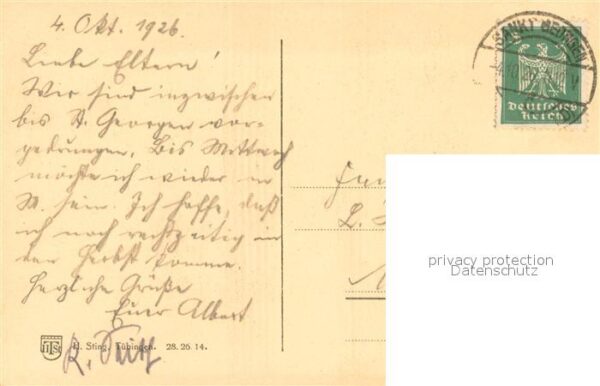 4. Okt. 1926.
Liebe Eltern!
Wir sind inzwischen
bis St. Georgen vor-
gedrungen. Bis Mittwoch
möchte ich wieder in
M. sein. Ich hoffe, daß
ich noch rechtzeitig in
den Herbst komme.
Herzliche Grüße
Euer Albert
SANKT GEORGEN
Deutsches
Reich
privacy protection
Datenschutz
H. Sting, Tübingen. 28. 26. 14.